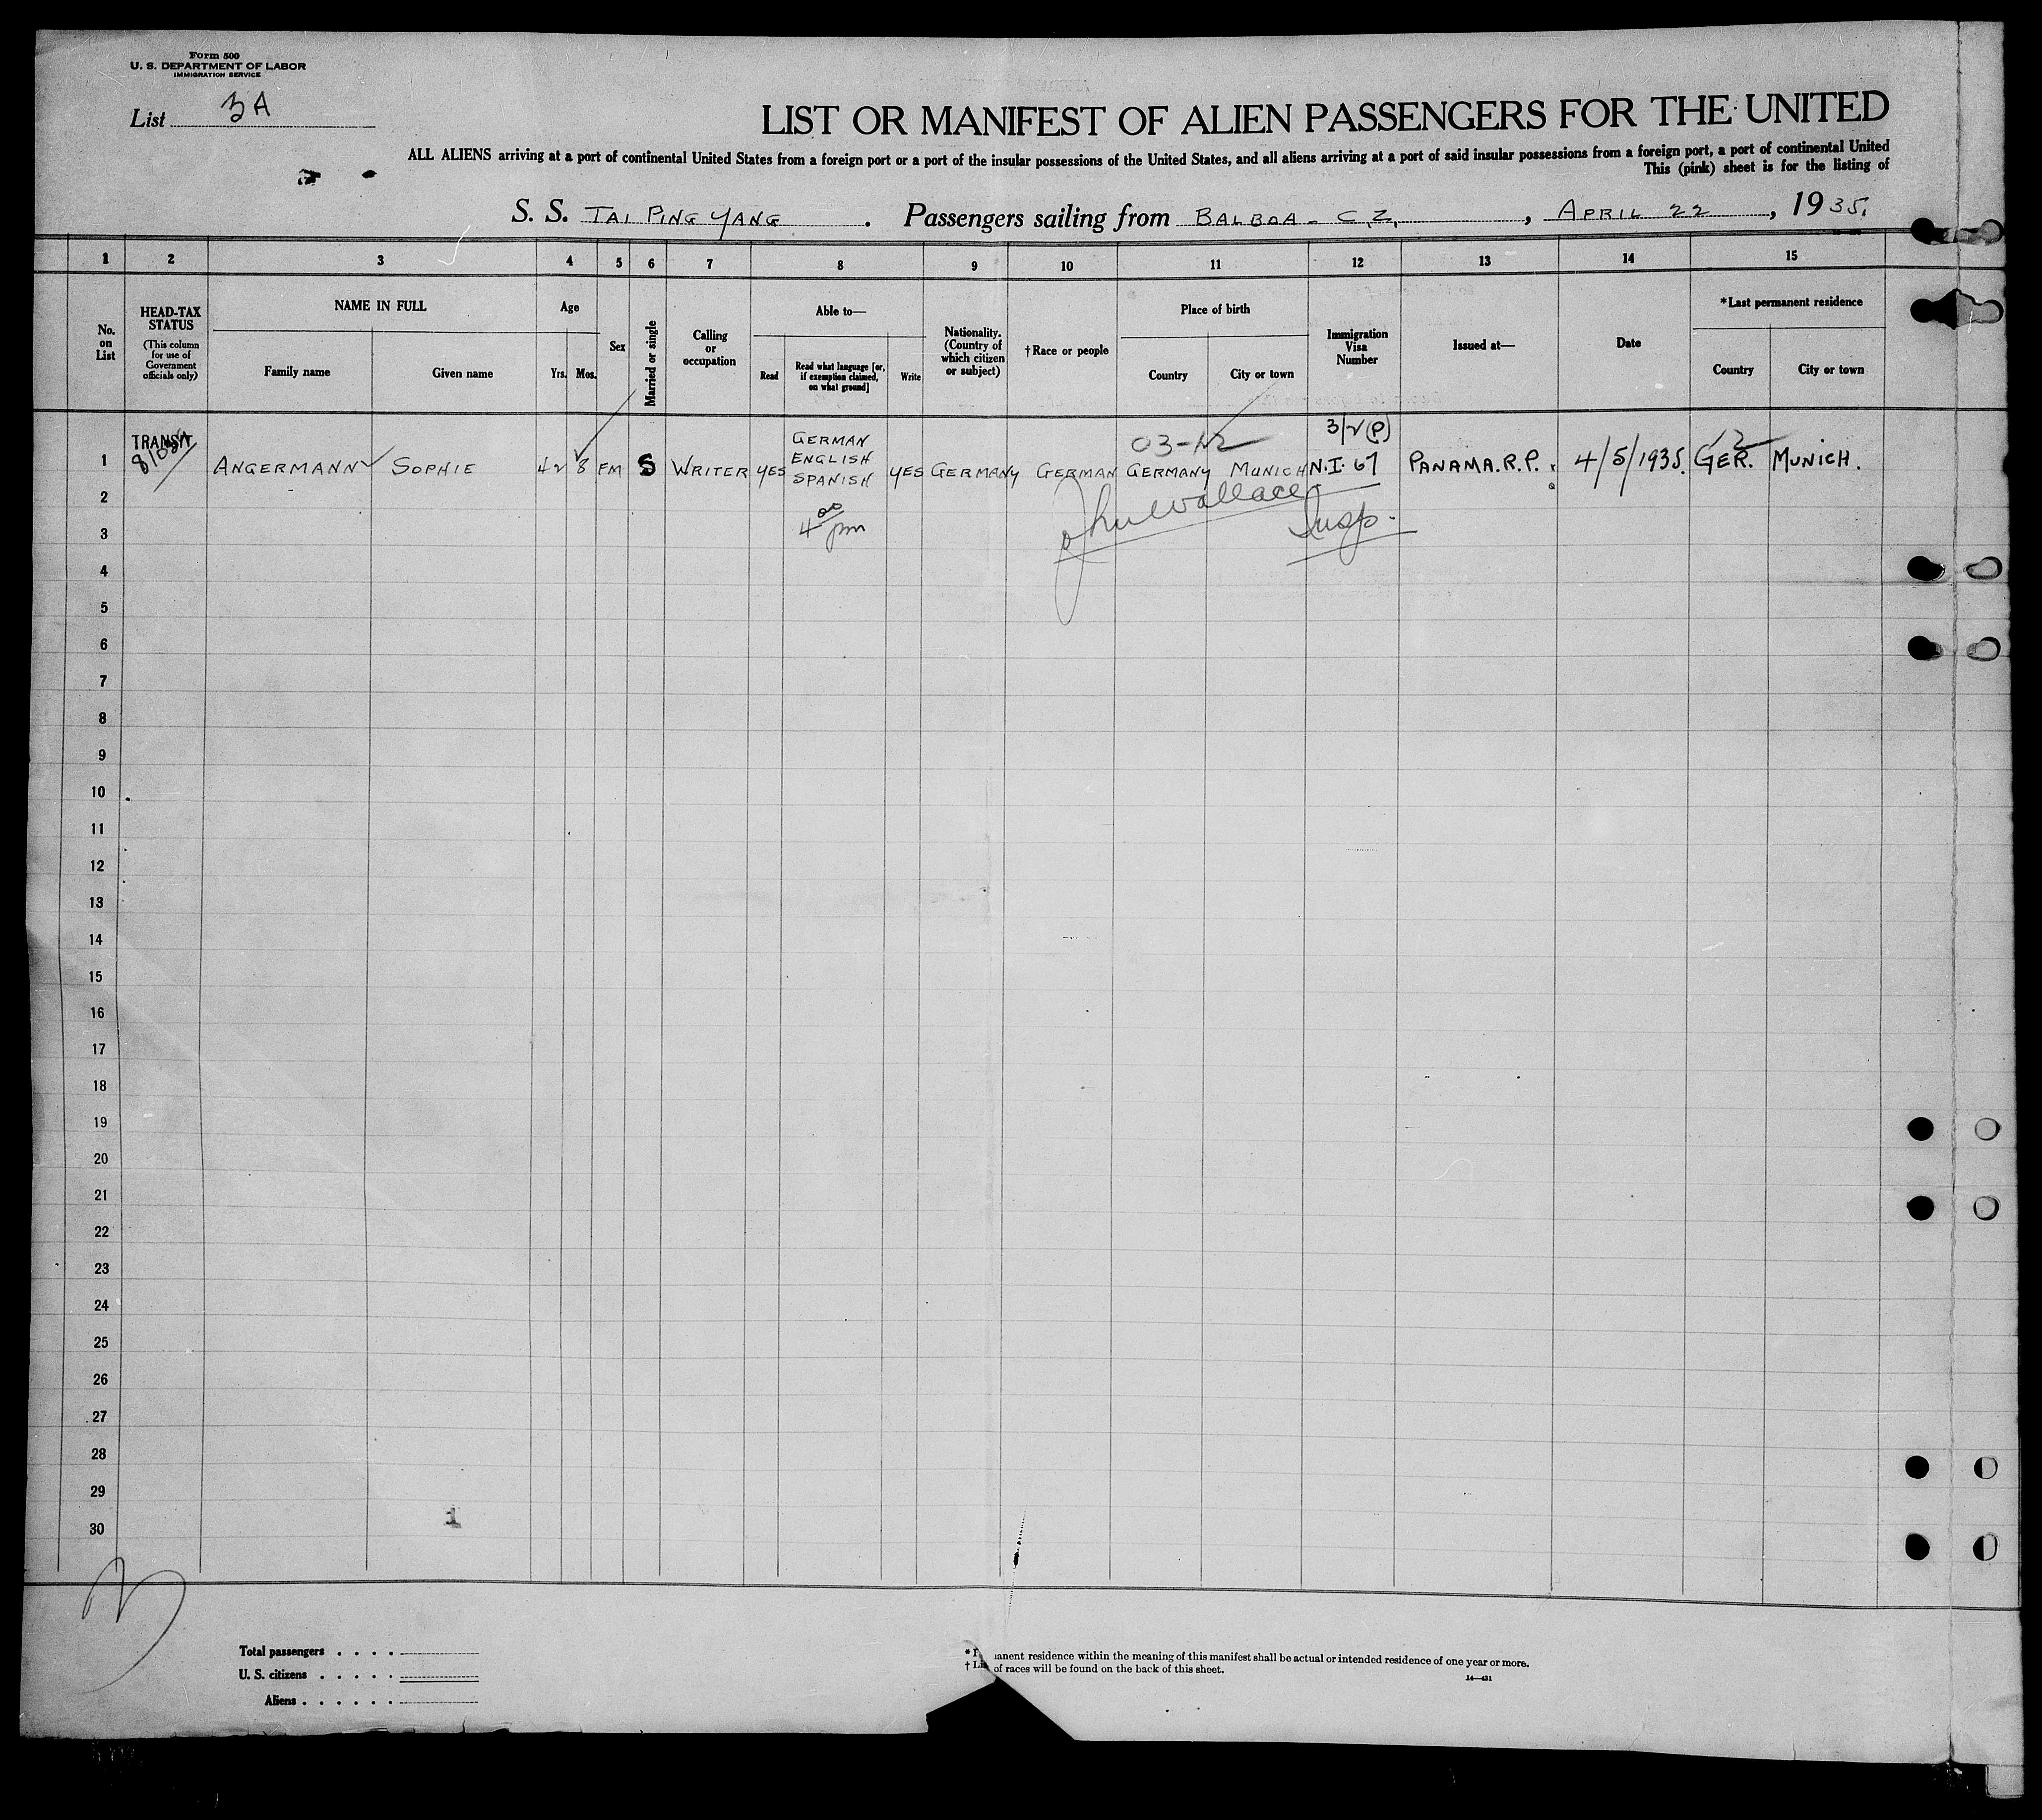 Form 500
U. S. DEPARTMENT OF LABOR
IMMIGRATION SERVICE
List 3A
LIST OR MANIFEST OF ALIEN PASSENGERS FOR THE UNITED
ALL ALIENS arriving at a port of continental United States from a foreign port or a port of the insular possessions of the United States, and all aliens arriving at a port of said insular possessions from a foreign port, a port of continental United
This (pink) sheet is for the listing of
S. S. TAI PING YANG . Passengers sailing from BALBOA - C.Z. , APRIL 22 , 1935.
1 2 3 4 5 6 7 8 9 10 11 12 13 14 15
No. on List
HEAD-TAX STATUS
(This column for use of Government officials only)
NAME IN FULL
Family name Given name
Age
Yrs. Mos.
Sex
Married or single
Calling or occupation
Able to—
Read
Read what language [or, if exemption claimed, on what ground]
Write
Nationality. (Country of which citizen or subject)
†Race or people
Place of birth
Country City or town
Immigration Visa Number
Issued at—
Date
*Last permanent residence
Country City or town
03-12 3/2(P) 12
1 TRANSIT ANGERMANN SOPHIE 42 8 FM S WRITER YES GERMAN ENGLISH SPANISH YES GERMANY GERMAN GERMANY MUNICH N.I. 67 PANAMA. R.P. 4/5/1935. GER. MUNICH.
2
3 4 00 pm John Wallace Insp.
4
5
6
7
8
9
10
11
12
13
14
15
16
17
18
19
20
21
22
23
24
25
26
27
28
29
1
30
Total passengers . . . .
U. S. citizens . . . . .
Aliens . . . . . .
* anent residence within the meaning of this manifest shall be actual or intended residence of one year or more.
† Li of races will be found on the back of this sheet.
14—431